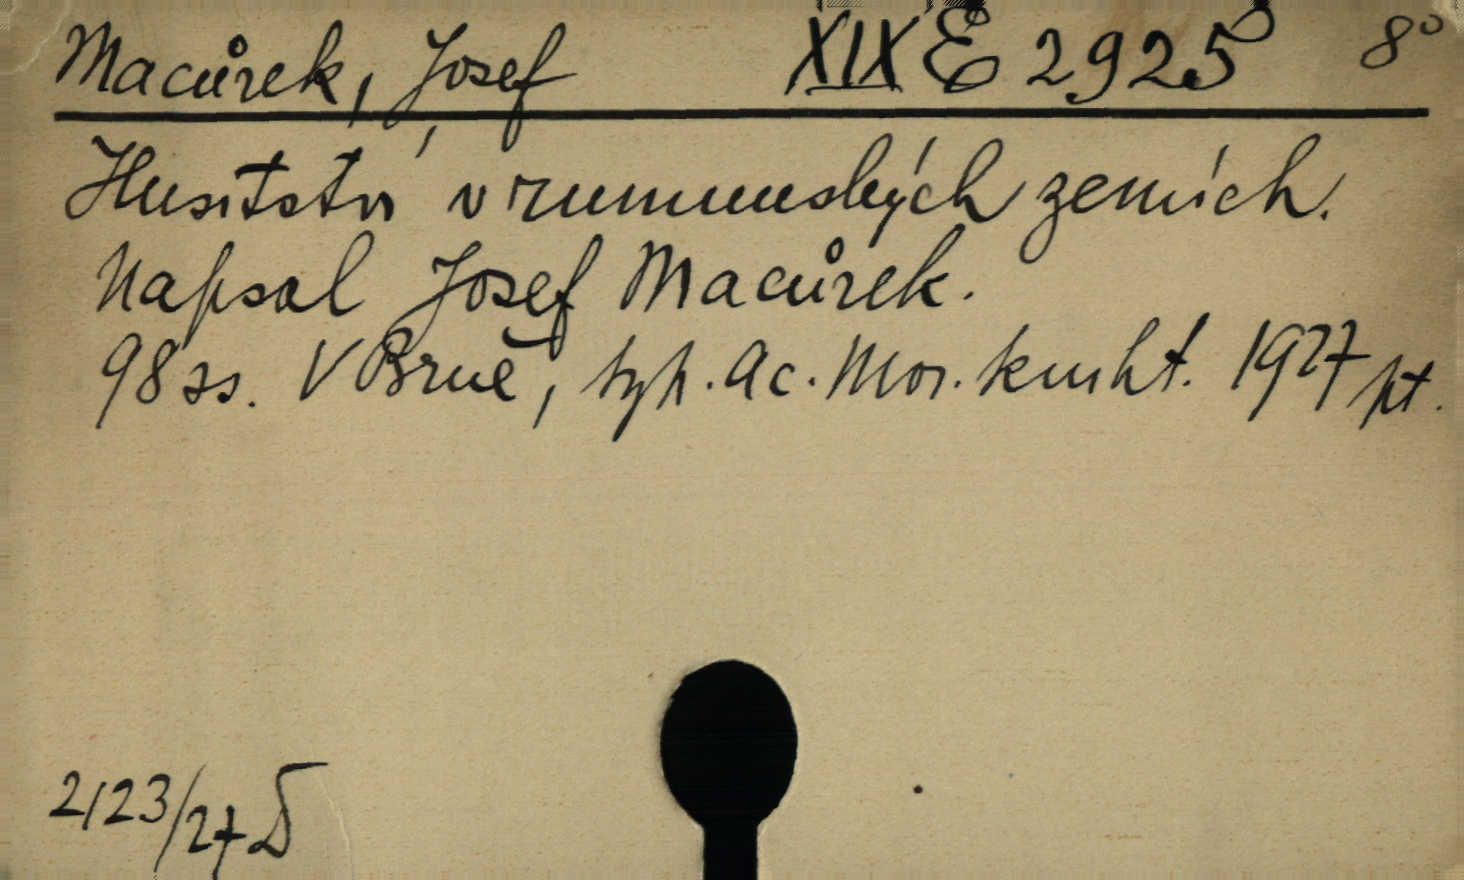 Macůrek, Josef XIX E 2925 8°
Husitství v rumunských zemích.
Napsal Josef Macůrek.
98 ss. V Brně, typ. Ac. Mor. kniht. 1927 pt.
2123/27 D